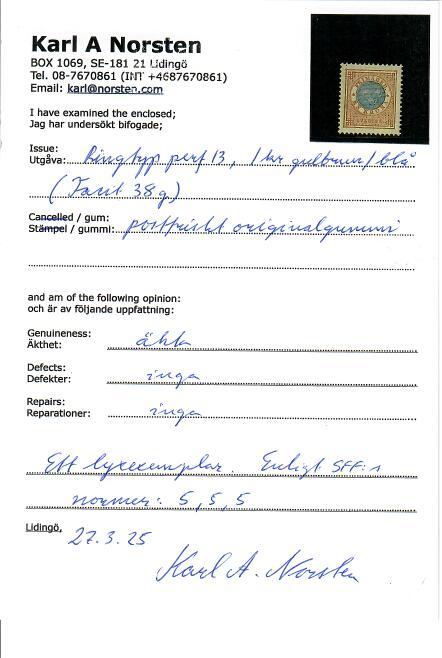 Karl A Norsten
BOX 1069, SE-181 21 Lidingö
Tel. 08-7670861 (INT +4687670861)
Email: karl@norsten.com
I have examined the enclosed;
Jag har undersökt bifogade;
Issue:
Utgåva: Ringtyp perf 13, 1 kr gulbrun/blå
(Facit 38g)
Cancelled / gum:
Stämpel / gummi: postfriskt originalgummi
and am of the following opinion:
och är av följande uppfattning:
Genuineness:
Äkthet: äkta
Defects:
Defekter: inga
Repairs:
Reparationer: inga
Ett lyxexemplar. Enligt SFF:s
normer: 5, 5, 5
Lidingö, 27.3.25
Karl A. Norsten